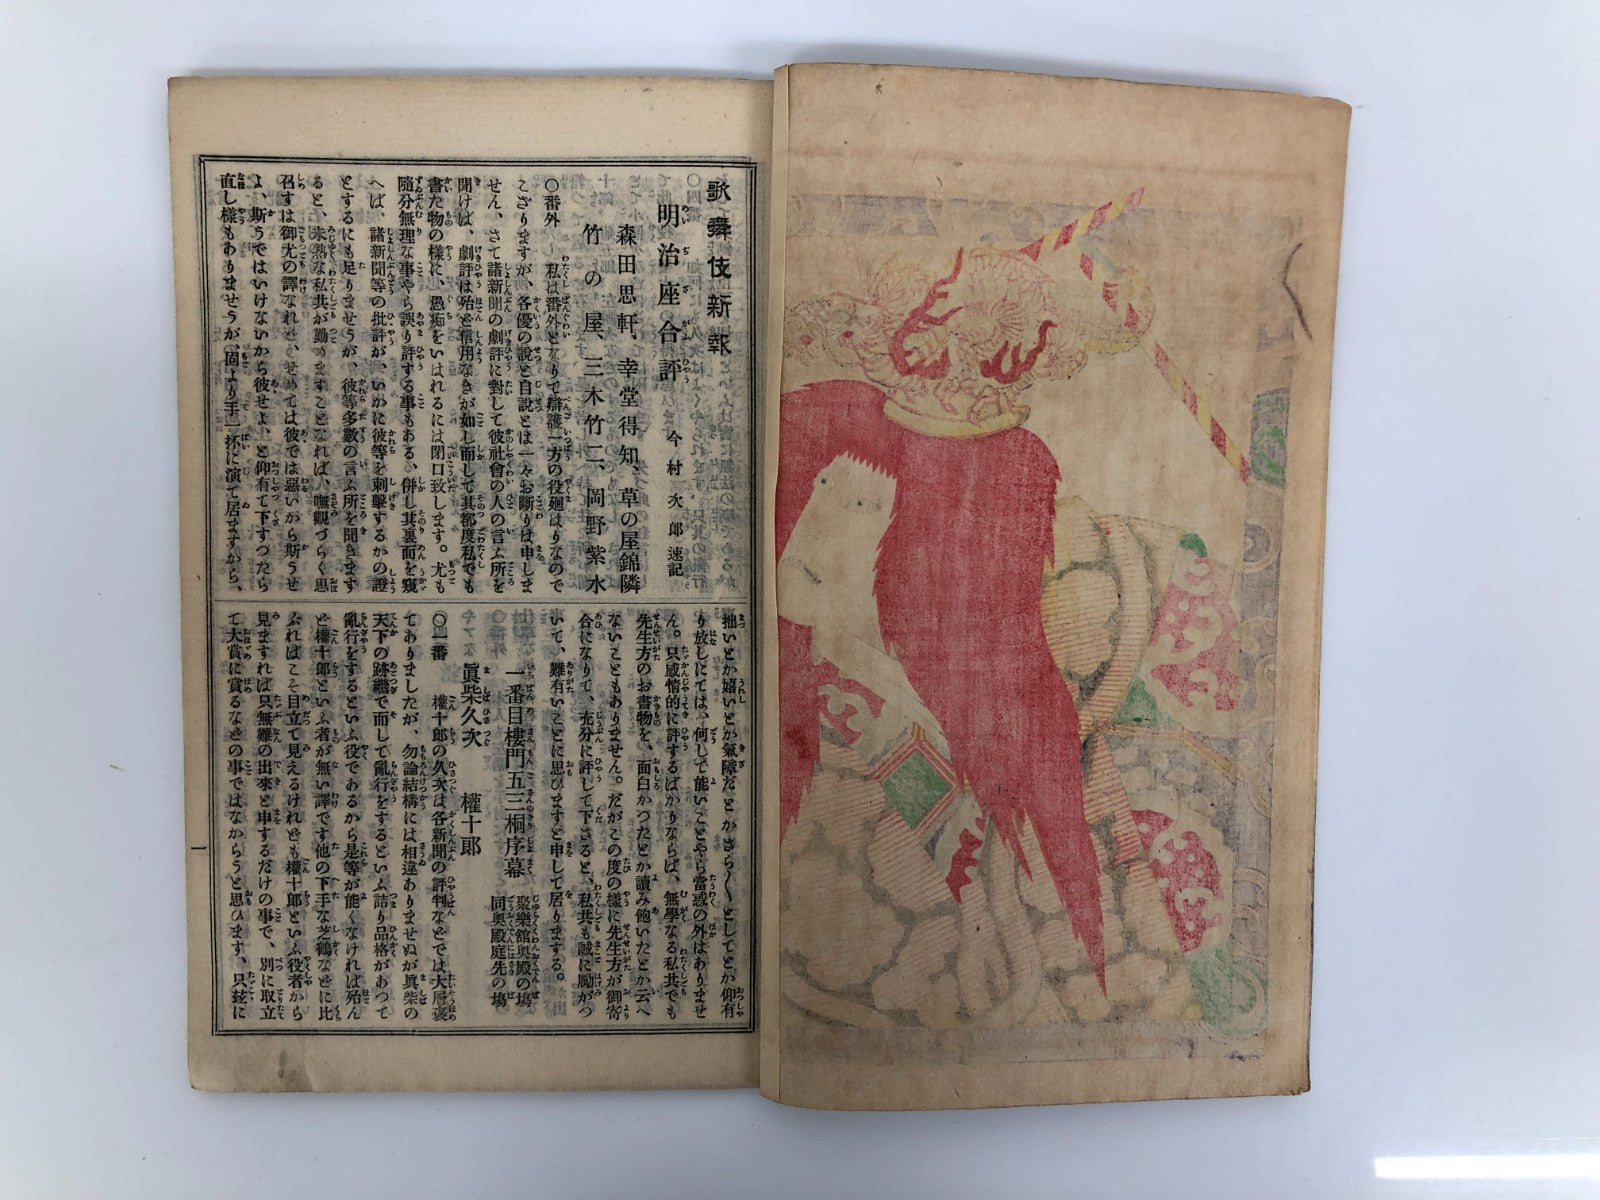 歌舞伎新報
明治座合評　今村次郎速記
森田思軒、幸堂得知、草の屋錦隣
竹の屋、三木竹二、岡野紫水
〇番外　私は番外となりて辯護一方の役廻はりなので
こざりますが、各優の説と自説とは一々お斷りは申しま
せん、さて諸新聞の劇評に對して彼社會の人の言ふ所を
聞けば、劇評は殆ど信用なきが如し而して其都度私でも
書た物の樣に、愚痴をいはれるには閉口致します。尤も
隨分無理な事やら誤り評する事もある、併し其裏面を窺
へば、諸新聞等の批評が、いかに彼等を刺擊するかの證
とするにも足りませうが、彼等多數の言ふ所を聞きます
ると、未熟な私共が勤めますことなれば、嘸觀づらく思
召すは御尤の譯なれど、せめては彼では惡いから斯うせ
よ、斯うではいけないから彼せよ、と仰有て下すつたら
直し樣もありませうが、固より手一杯に演て居ますから、
拙いとか嬉いとか氣障だとかさら〱としてとか仰有
り放しにては、何して能いことやら當惑の外はありませ
ん。只感情的に評するばかりならば、無學なる私共でも
先生方のお書物を、面白かつたとか讀み飽いたとか云へ
ないこともありません。だがこの度の樣に先生方が御寄
合になりて、充分に評して下さると、私共も誠に勵がつ
いて、難有いことに思ひますと申して居りまする。
一番目樓門五三桐序幕　聚樂館奥殿の塲
同奥殿庭先の塲
眞柴久次　權十郎
〇一番　權十郎の久次は各新聞の評判などでは大層褒
てありましたが、勿論結構には相違ありませぬが眞柴の
天下の跡繼で而して亂行をするといふ詰り品格があつて
亂行をするといふ役であるから是等が能くなければ殆ん
ど權十郎といふ者が無い譯です他の下手な芝鶴などに比
ぶればこそ目立て見えるけれども權十郎といふ役者から
見ますれば只無難の出來と申するだけの事で、別に取立
て大賞に賞るなどの事ではなからうと思ひます、只玆に
一